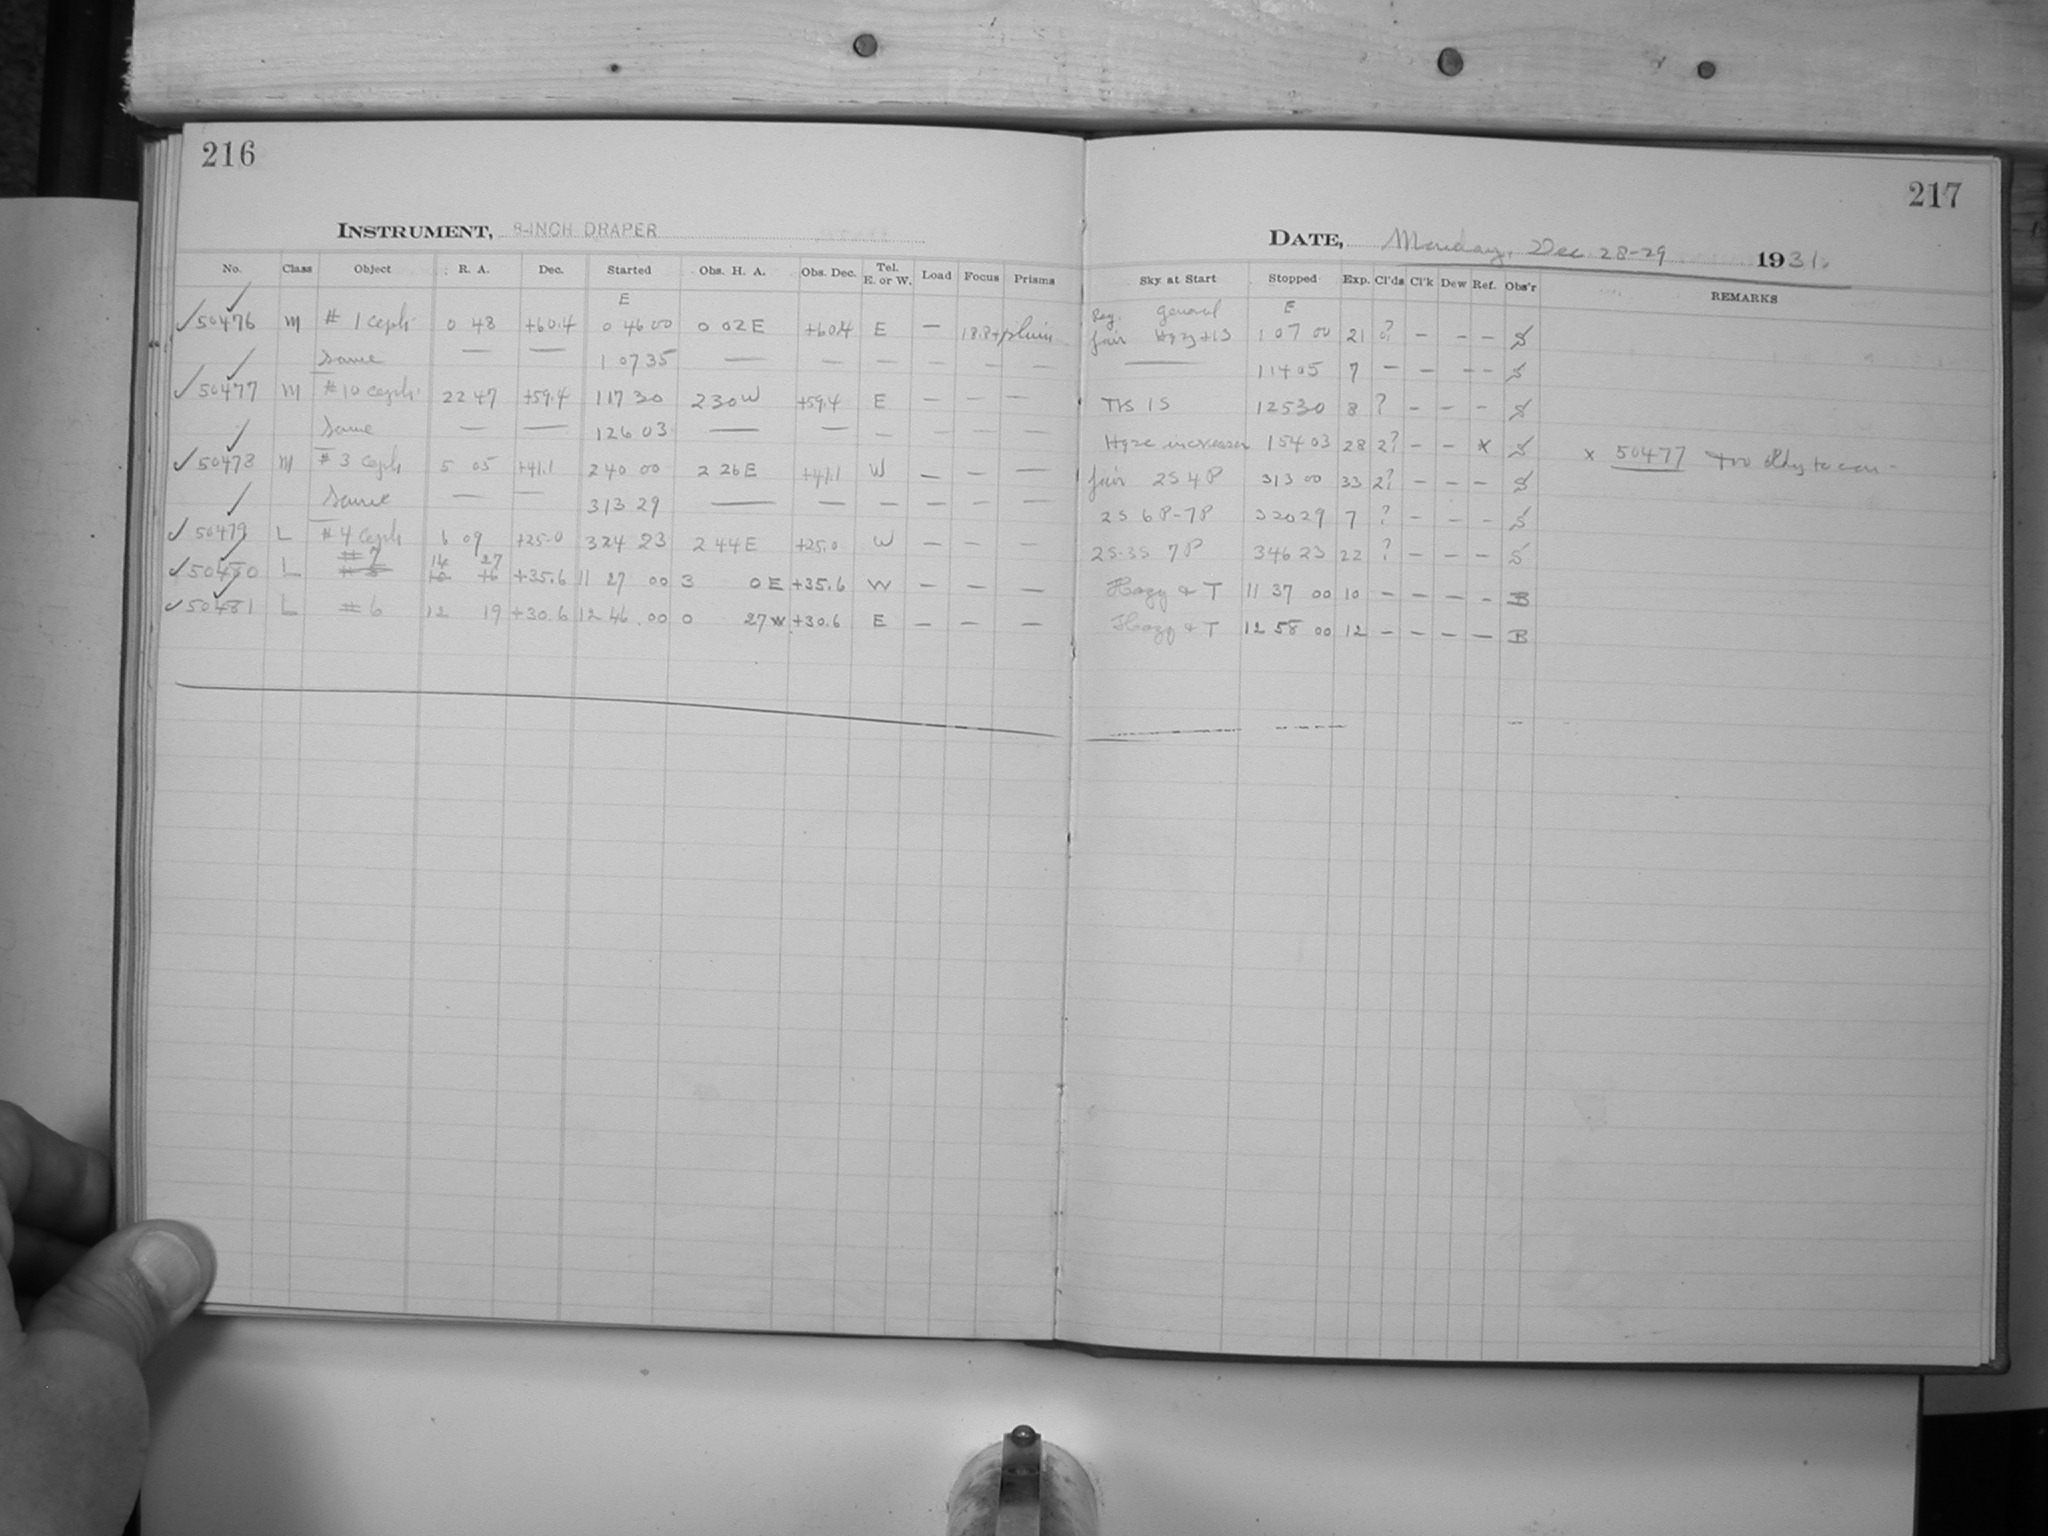 216
INSTRUMENT, 8-INCH DRAPER
No. Class Object R. A. Dec. Started Obs. H. A. Obs. Dec. Tel. E. or W. Load Focus Prisms
E
✓ 50476 M # 1 Ceph 0 48 +60.4 0 46 00 0 02 E +60.4 E — 18.8+ plain
✓ Same — — 1 07 35 — — — — — —
✓ 50477 M # 10 Ceph 22 47 +59.4 1 17 30 2 30 W +59.4 E — — —
✓ Same — — 1 26 03 — — — — — —
✓ 50478 M # 3 Ceph 5 05 +41.1 2 40 00 2 26 E +41.1 W — — —
✓ Same — — 3 13 29 — — — — — —
✓ 50479 L # 4 Ceph 6 09 +25.0 3 24 23 2 44 E +25.0 W — — —
# 7 14 27
✓ 50480 L # 5 +35.6 11 27 00 3 0 E +35.6 W — — —
✓ 50481 L # 6 12 19 +30.6 12 46 00 0 27 W +30.6 E — — —
217
DATE, Monday, Dec 28-29 1931.
Sky at Start Stopped Exp. Cl'ds Cl'k Dew Ref. Obs'r REMARKS
general E
fair Hazy 1 07 00 21 ? — — — S
— 1 14 05 7 — — — — S
1S 1 25 30 8 ? — — — S
Haze increases 1 54 03 28 2? — — x S x 50477 Too cldy to con-
fair 2S 4P 3 13 00 33 2? — — — S
2S 6P-7P 3 20 29 7 ? — — — S
2S-3S 7P 3 46 23 22 ? — — — S
Hazy & T 11 37 00 10 — — — — B
Hazy & T 12 58 00 12 — — — — B